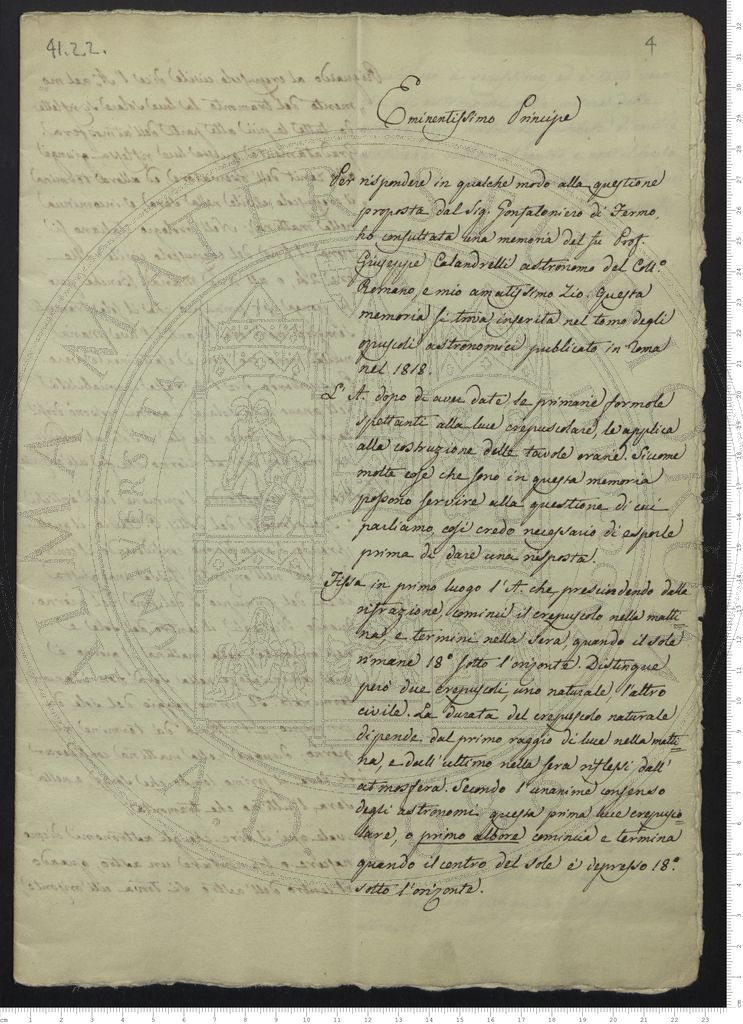 41.2.2.
4
Eminentissimo Principe
Per rispondere in qualche modo alla questione
proposta dal Sig. Gonfaloniero di Fermo,
ho consultata una memoria del fu Prof.
Giuseppe Calandrelli astronomo del Coll.°
Romano, e mio amatissimo Zio. Questa
memoria si trova inserita nel tomo degli
opuscoli astronomici publicato in Roma
nel 1818.
L'A. dopo di aver date le primarie formole
spettanti alla luce crepuscolare, le applica
alla costruzione delle tavole orarie. Siccome
molte cose che sono in questa memoria
possono servire alla questione di cui
parliamo, così credo necessario di esporle
prima di dare una risposta.
Fissa in primo luogo l'A. che prescindendo dalla
rifrazione, cominci il crepuscolo nella matti=
na, e termini nella sera, quando il sole
rimane 18° sotto l'orizonte. Distingue
però due crepuscoli uno naturale, l'altro
civile. La durata del crepuscolo naturale
dipende dal primo raggio di luce nella matti=
na, e dall'ultimo nella sera riflessi dall'
atmosfera. Secondo l'unanime consenso
degli astronomi questa prima luce crepusco=
lare, o primo albore comincia e termina
quando il centro del sole è depresso 18°
sotto l'orizonte.
ALMA MATER STUDIORUM
UNIVERSITÀ